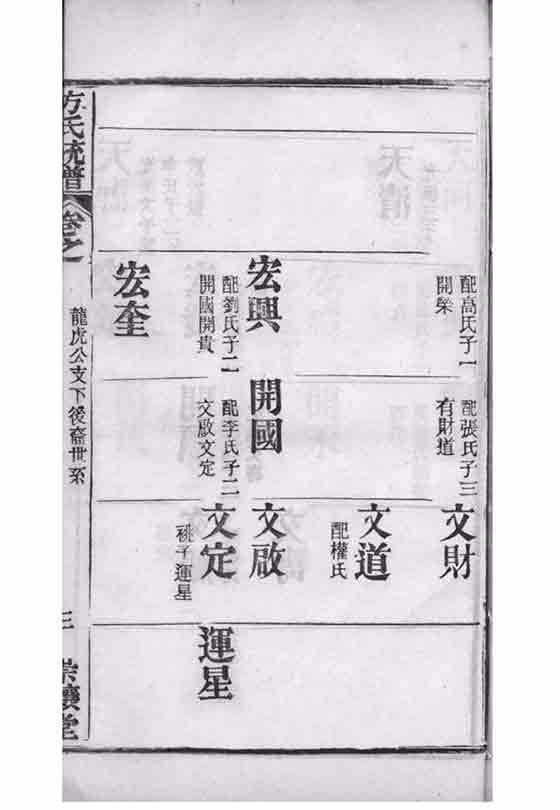 配高氏子一
開榮
配張氏子三
有財道
文財
文道
配權氏
宏興
配劉氏子二
開國開貴
開國
配李氏子二
文啟文定
文啟
文定
祧子運星
運星
宏奎
方氏統譜
卷之一
龍虎公支下後裔世系
三
崇讓堂